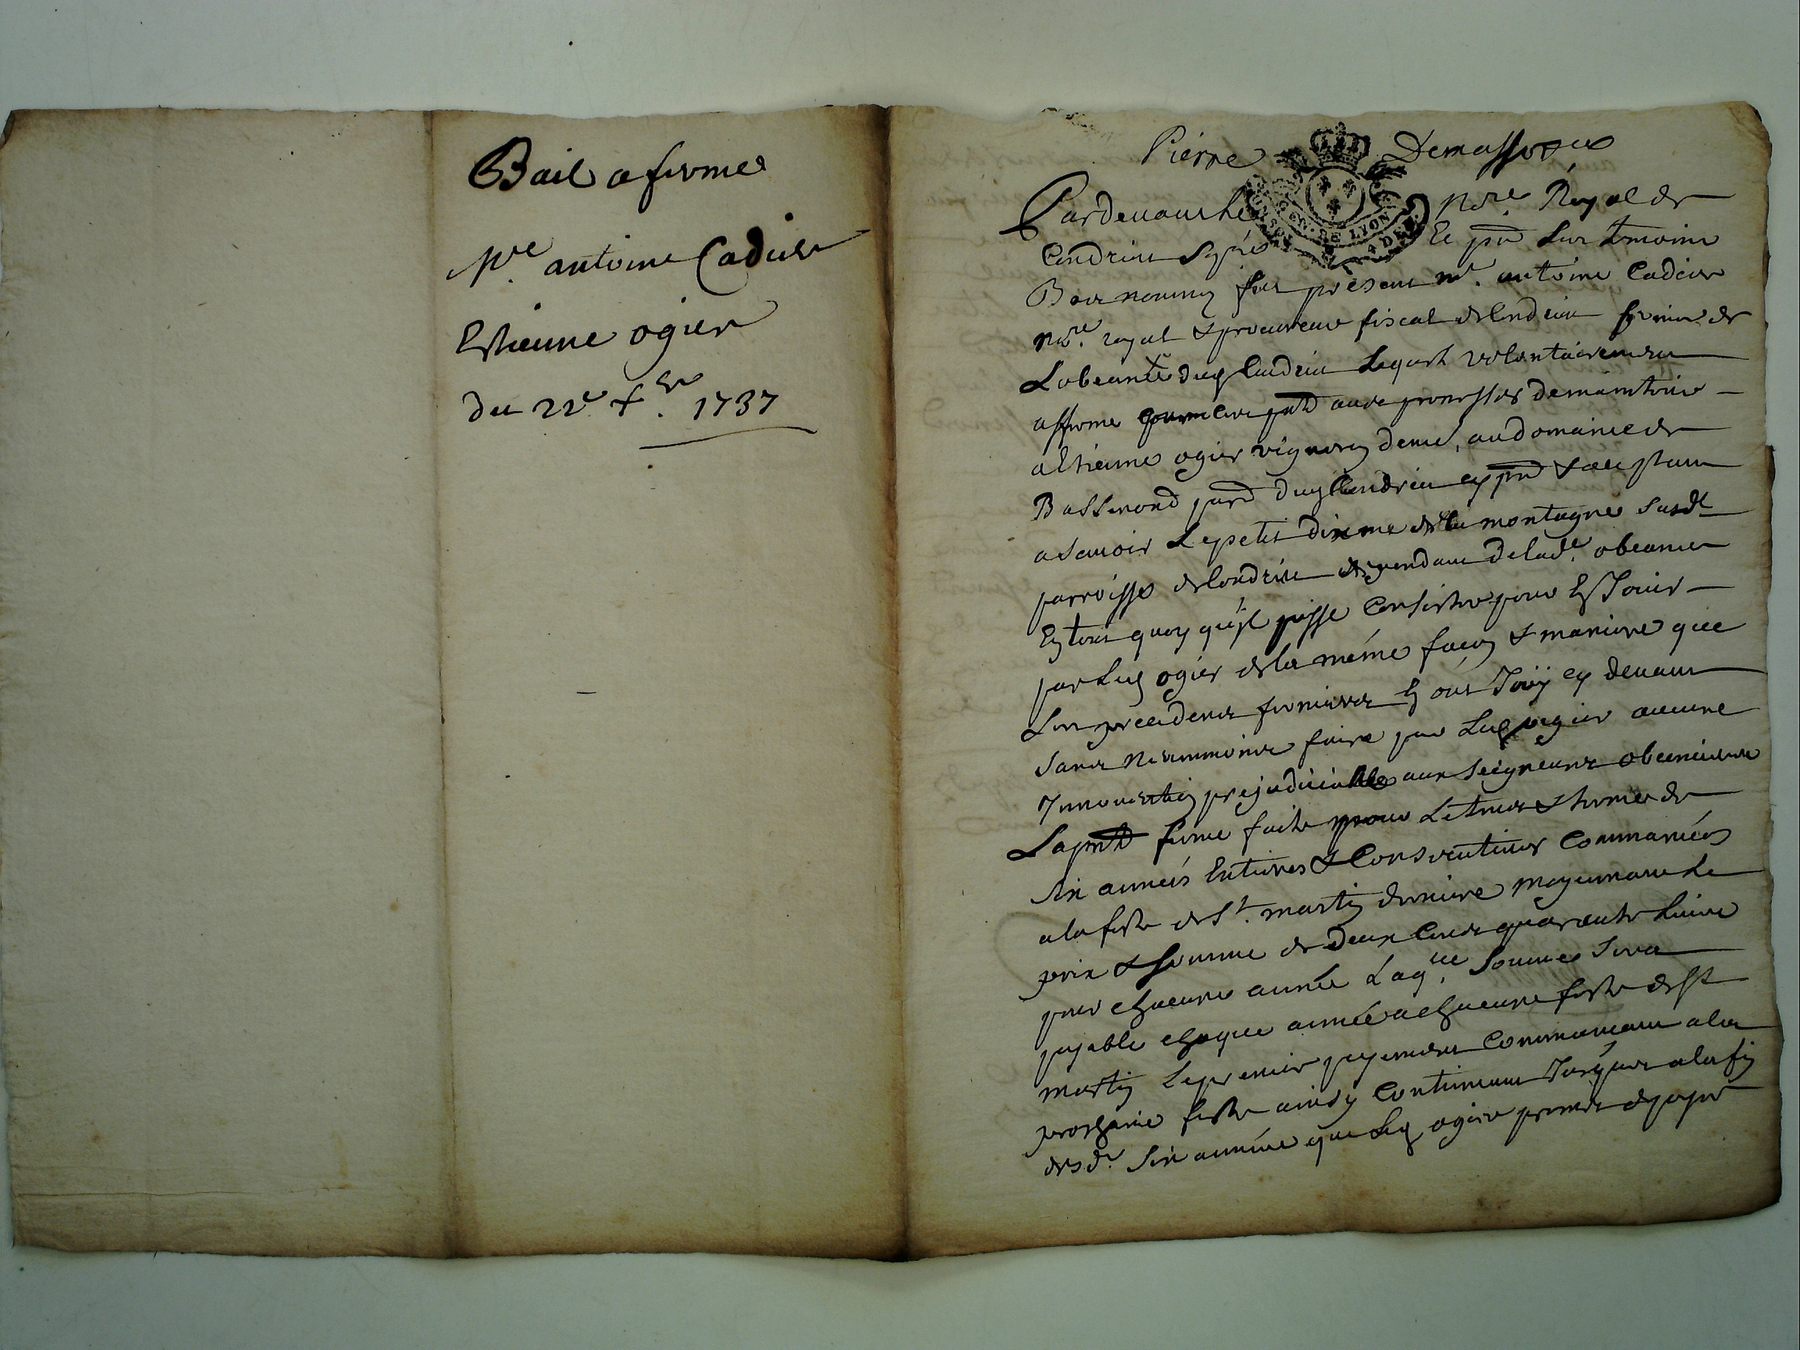 Bail a ferme
Mre antoine Cadier
Estienne ogier
du 22e Xbre 1737
Pierre Demassoux
Pardevant Le Nore Royal de
GEN. DE LYON
4 DEN.
Condrieu Et pnt Les temoins
Bas nommez fut present mr. antoine Cadier
nore. royal & procureur fiscal de Condrieu fermier de
Lobeance dud Condrieu Lequel volontairement
afferme avec promesses de maintenir
a Estienne ogier vigneron demt. au domaine de
Bassenond parr dud Condrieu cy pnt & acceptant
a savoir Le petit dixme de la montagne sud
parroisse de Condrieu dependant de lade. obeance
En tout quoy qu'il puisse Consister pour En Jouir
par Led ogier de la même facon & maniere que
Les precedents fermiers En ont Jouy cy devant
sans neanmoins faire par Led ogier aucune
Innovation prejudiciable aux seigneurs obeanciers
La pnte ferme faite pour Le temps & terme de
six années Entieres & Consecutives Commancées
a la feste de St. martin derniere moyennant Le
prix & somme de deux Cents quarante Livres
pour chacune année Laqlle. somme sera
payable chaque année a chacune feste de st
martin Le premier payement Commancant a la
prochaine feste ainsy Continuant Jusques a la fin
desd. six années que Led ogier promet de payer